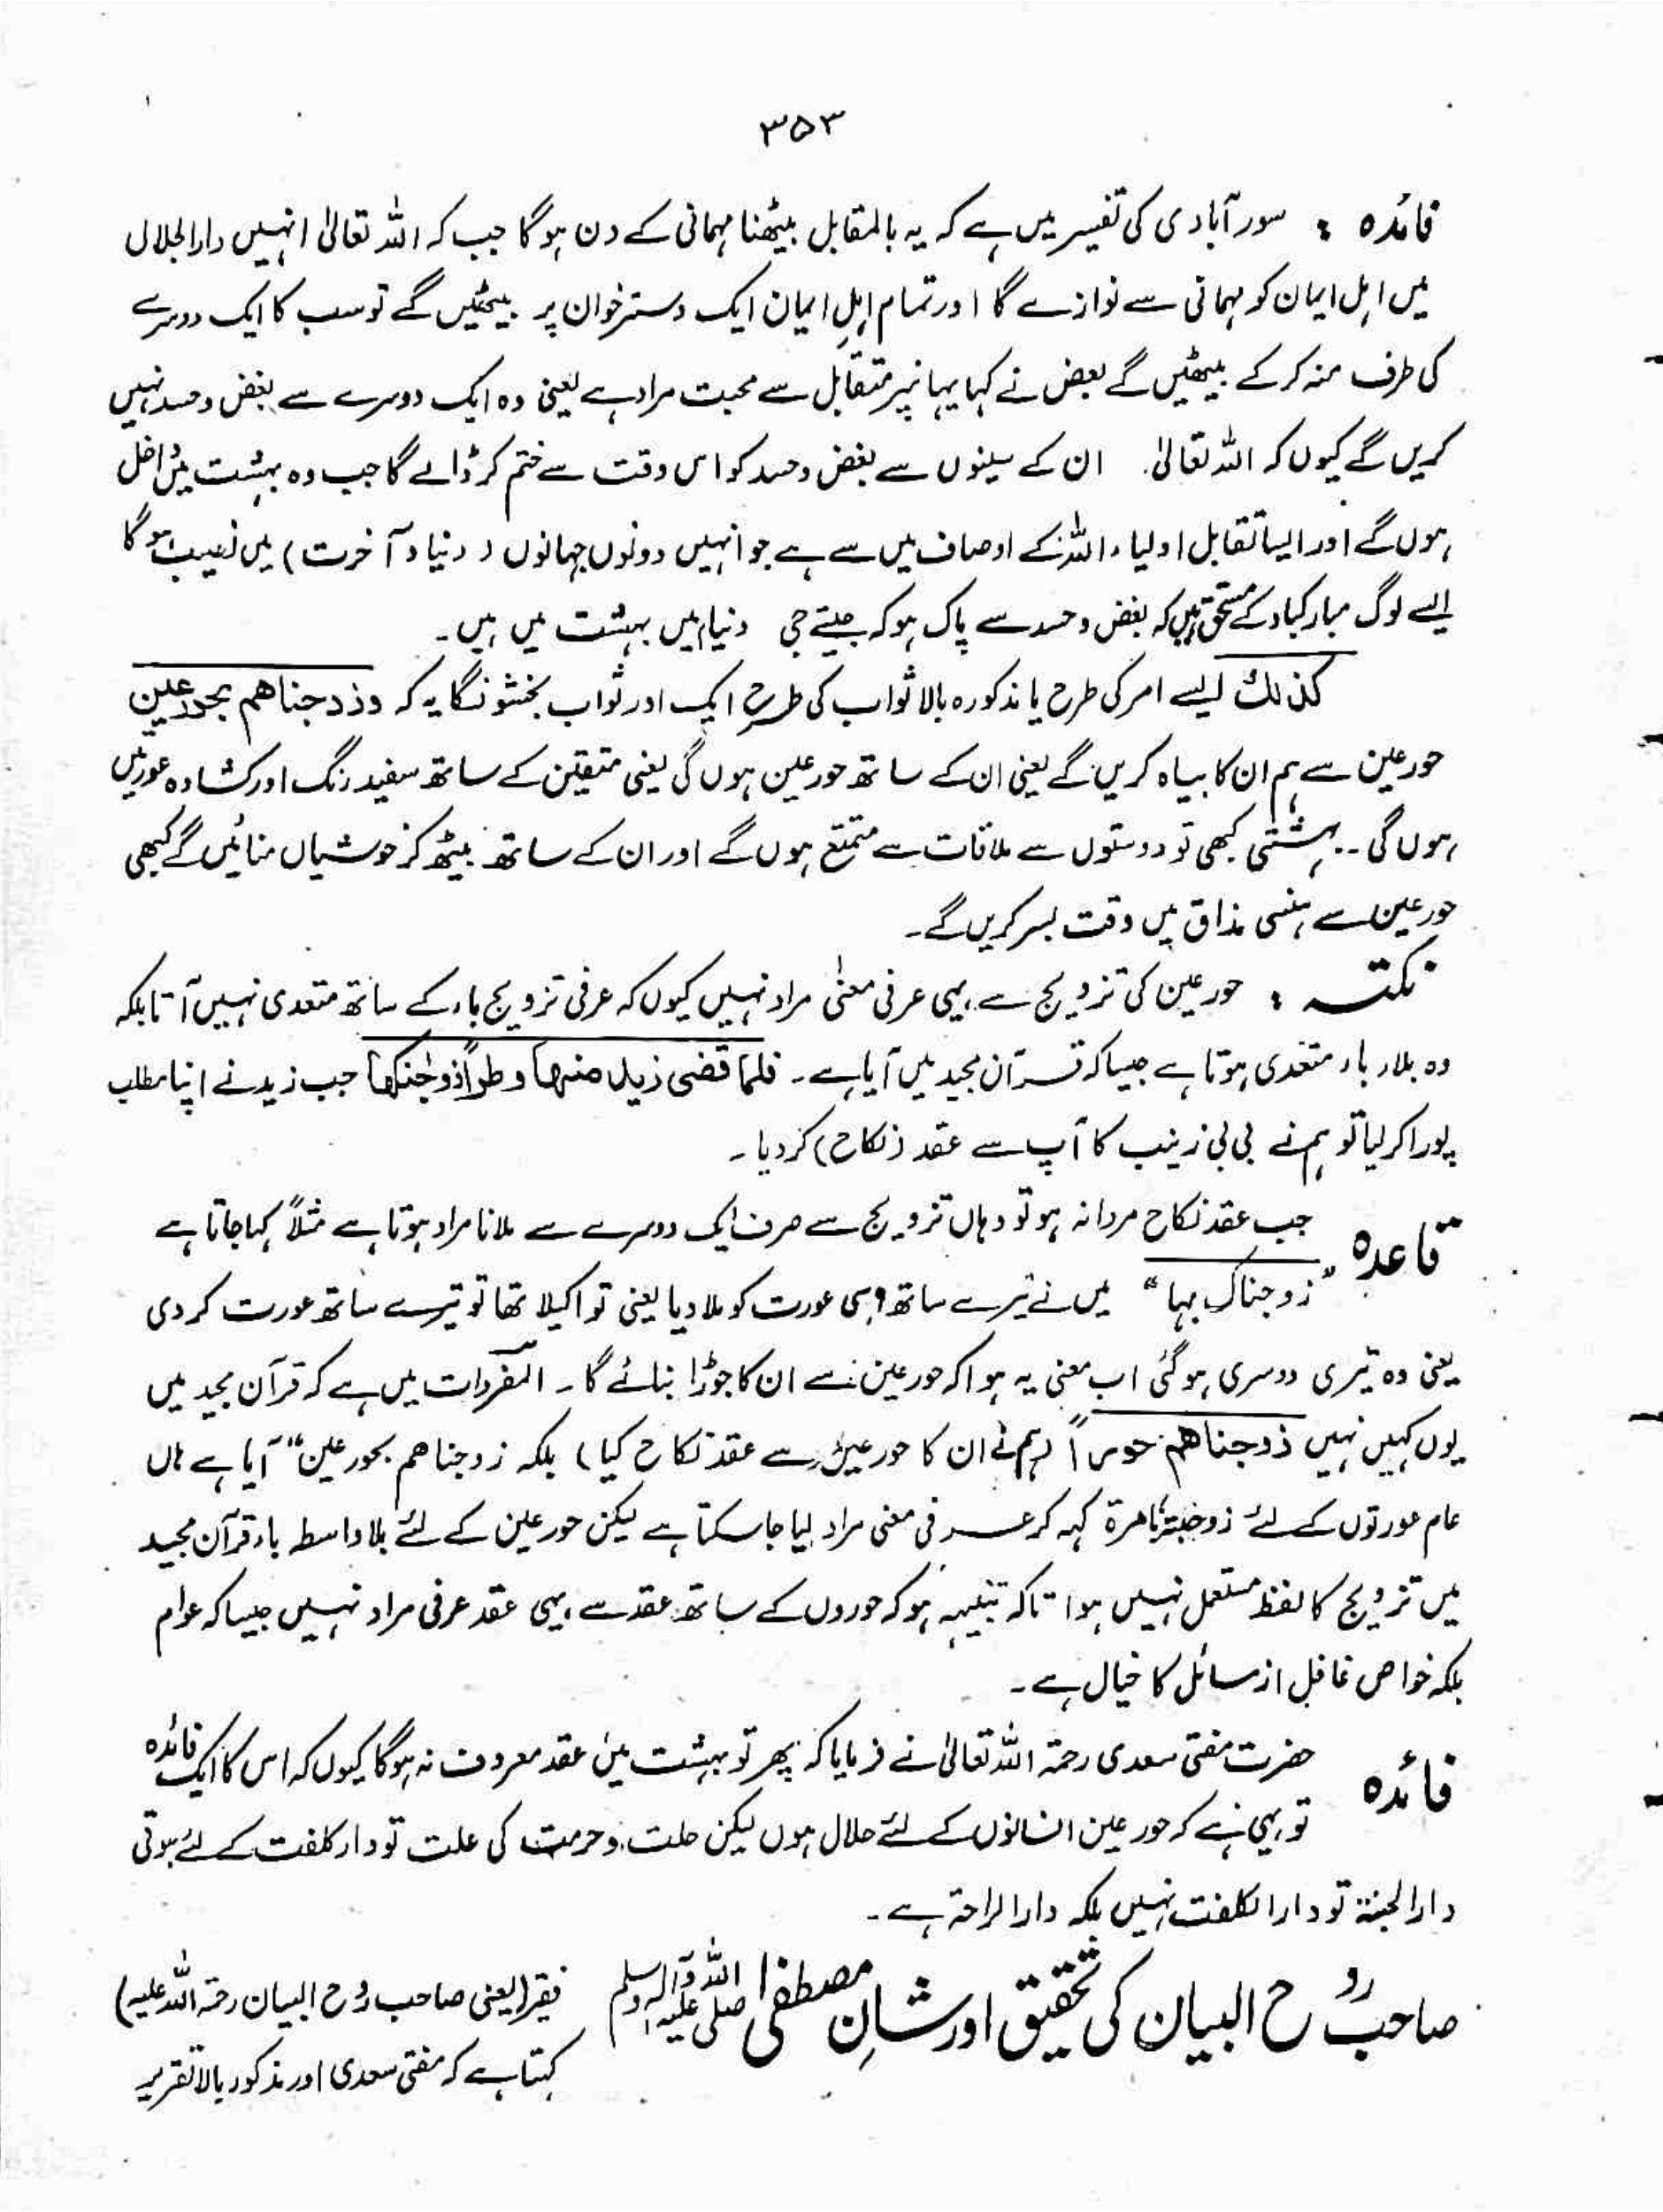 ۳۵۳
فائدہ : سورآبادی کی تفسیر میں ہے کہ یہ بالمقابل بیٹھنا مہمانی کے دن ہوگا جب کہ اللہ تعالیٰ انہیں دارالجلال
میں اہل ایمان کو مہمانی سے نوازے گا اور تمام اہلِ ایمان ایک دسترخوان پر بیٹھیں گے تو سب کا ایک دوسرے
کی طرف منہ کر کے بیٹھیں گے بعض نے کہا یہانپر متقابل سے محبت مراد ہے یعنی وہ ایک دوسرے سے بغض وحسد نہیں
کریں گے کیوں کہ اللہ تعالیٰ ان کے سینوں سے بغض وحسد کو اس وقت سے ختم کر ڈالے گا جب وہ بہشت میں داخل
ہوں گے اور ایسا تقابل اولیاء اللہ کے اوصاف میں سے ہے جو انہیں دونوں جہانوں (دنیا و آخرت) میں نصیب ہوگا
ایسے لوگ مبارکباد کے مستحق ہیں کہ بغض وحسد سے پاک ہو کر جیتے جی دنیا میں بہشت میں ہیں۔
کذلک ایسے امر کی طرح یا مذکورہ بالا ثواب کی طرح ایک اور ثواب بخشونگا یہ کہ وزوجناھم بحور عین
حور عین سے ہم ان کا بیاہ کریں گے یعنی ان کے ساتھ حور عین ہوں گی یعنی متقین کے ساتھ سفید رنگ اور کشادہ عورتیں
ہوں گی۔ بہشتی کبھی تو دوستوں سے ملاقات سے متمتع ہوں گے اور ان کے ساتھ بیٹھ کر خوشیاں منائیں گے کبھی
حور عین سے ہنسی مذاق میں وقت بسر کریں گے۔
نکتہ : حور عین کی تزویج سے یہی عرفی معنیٰ مراد نہیں کیوں کہ عرفی تزویج باء کے ساتھ متعدی نہیں آتا بلکہ
وہ بلا باء متعدی ہوتا ہے جیسا کہ قرآن مجید میں آیا ہے۔ فلما قضی زید منھا وطراً زوجنکھا جب زید نے اپنا مطلب
پورا کر لیا تو ہم نے بی بی زینب کا آپ سے عقد (نکاح) کردیا۔
قاعدہ جب عقد نکاح مردانہ ہو تو وہاں تزویج سے صرف ایک دوسرے سے ملانا مراد ہوتا ہے مثلاً کہا جاتا ہے
"زوجناک بہا" میں نے تیرے ساتھ وہی عورت کو ملا دیا یعنی تو اکیلا تھا تو تیرے ساتھ عورت کر دی
یعنی وہ تیری دوسری ہوگئی اب معنی یہ ہوا کہ حور عین سے ان کا جوڑا بنائے گا۔ المفردات میں ہے کہ قرآن مجید میں
یوں کہیں نہیں زوجناھم حوراً (ہم نے ان کا حور عین سے عقد نکاح کیا) بلکہ زوجناھم بحور عین" آیا ہے ہاں
عام عورتوں کے لئے زوجتہ امرۃ کہہ کر عرفی معنی مراد لیا جاسکتا ہے لیکن حور عین کے لئے بلا واسطہ باء قرآن مجید
میں تزویج کا لفظ مستعمل نہیں ہوا تاکہ تنبیہہ ہو کہ حوروں کے ساتھ عقد سے یہی عقد عرفی مراد نہیں جیسا کہ عوام
بلکہ خواص غافل از مسائل کا خیال ہے۔
فائدہ حضرت مفتی سعدی رحمۃ اللہ تعالیٰ نے فرمایا کہ پھر تو بہشت میں عقد معروف نہ ہوگا کیوں کہ اس کا ایک فائدہ
تو یہی ہے کہ حور عین انسانوں کے لئے حلال ہوں لیکن حلت وحرمت کی علت تو دار کلفت کے لئے ہوتی
دارالجنۃ تو دارالکلفت نہیں بلکہ دارالراحۃ ہے۔
صاحبِ روح البیان کی تحقیق اور شانِ مصطفیٰ صلی اللہ علیہ وآلہ وسلم فقیر (یعنی صاحب روح البیان رحمۃ اللہ علیہ)
کہتا ہے کہ مفتی سعدی اور مذکور بالا تقریر